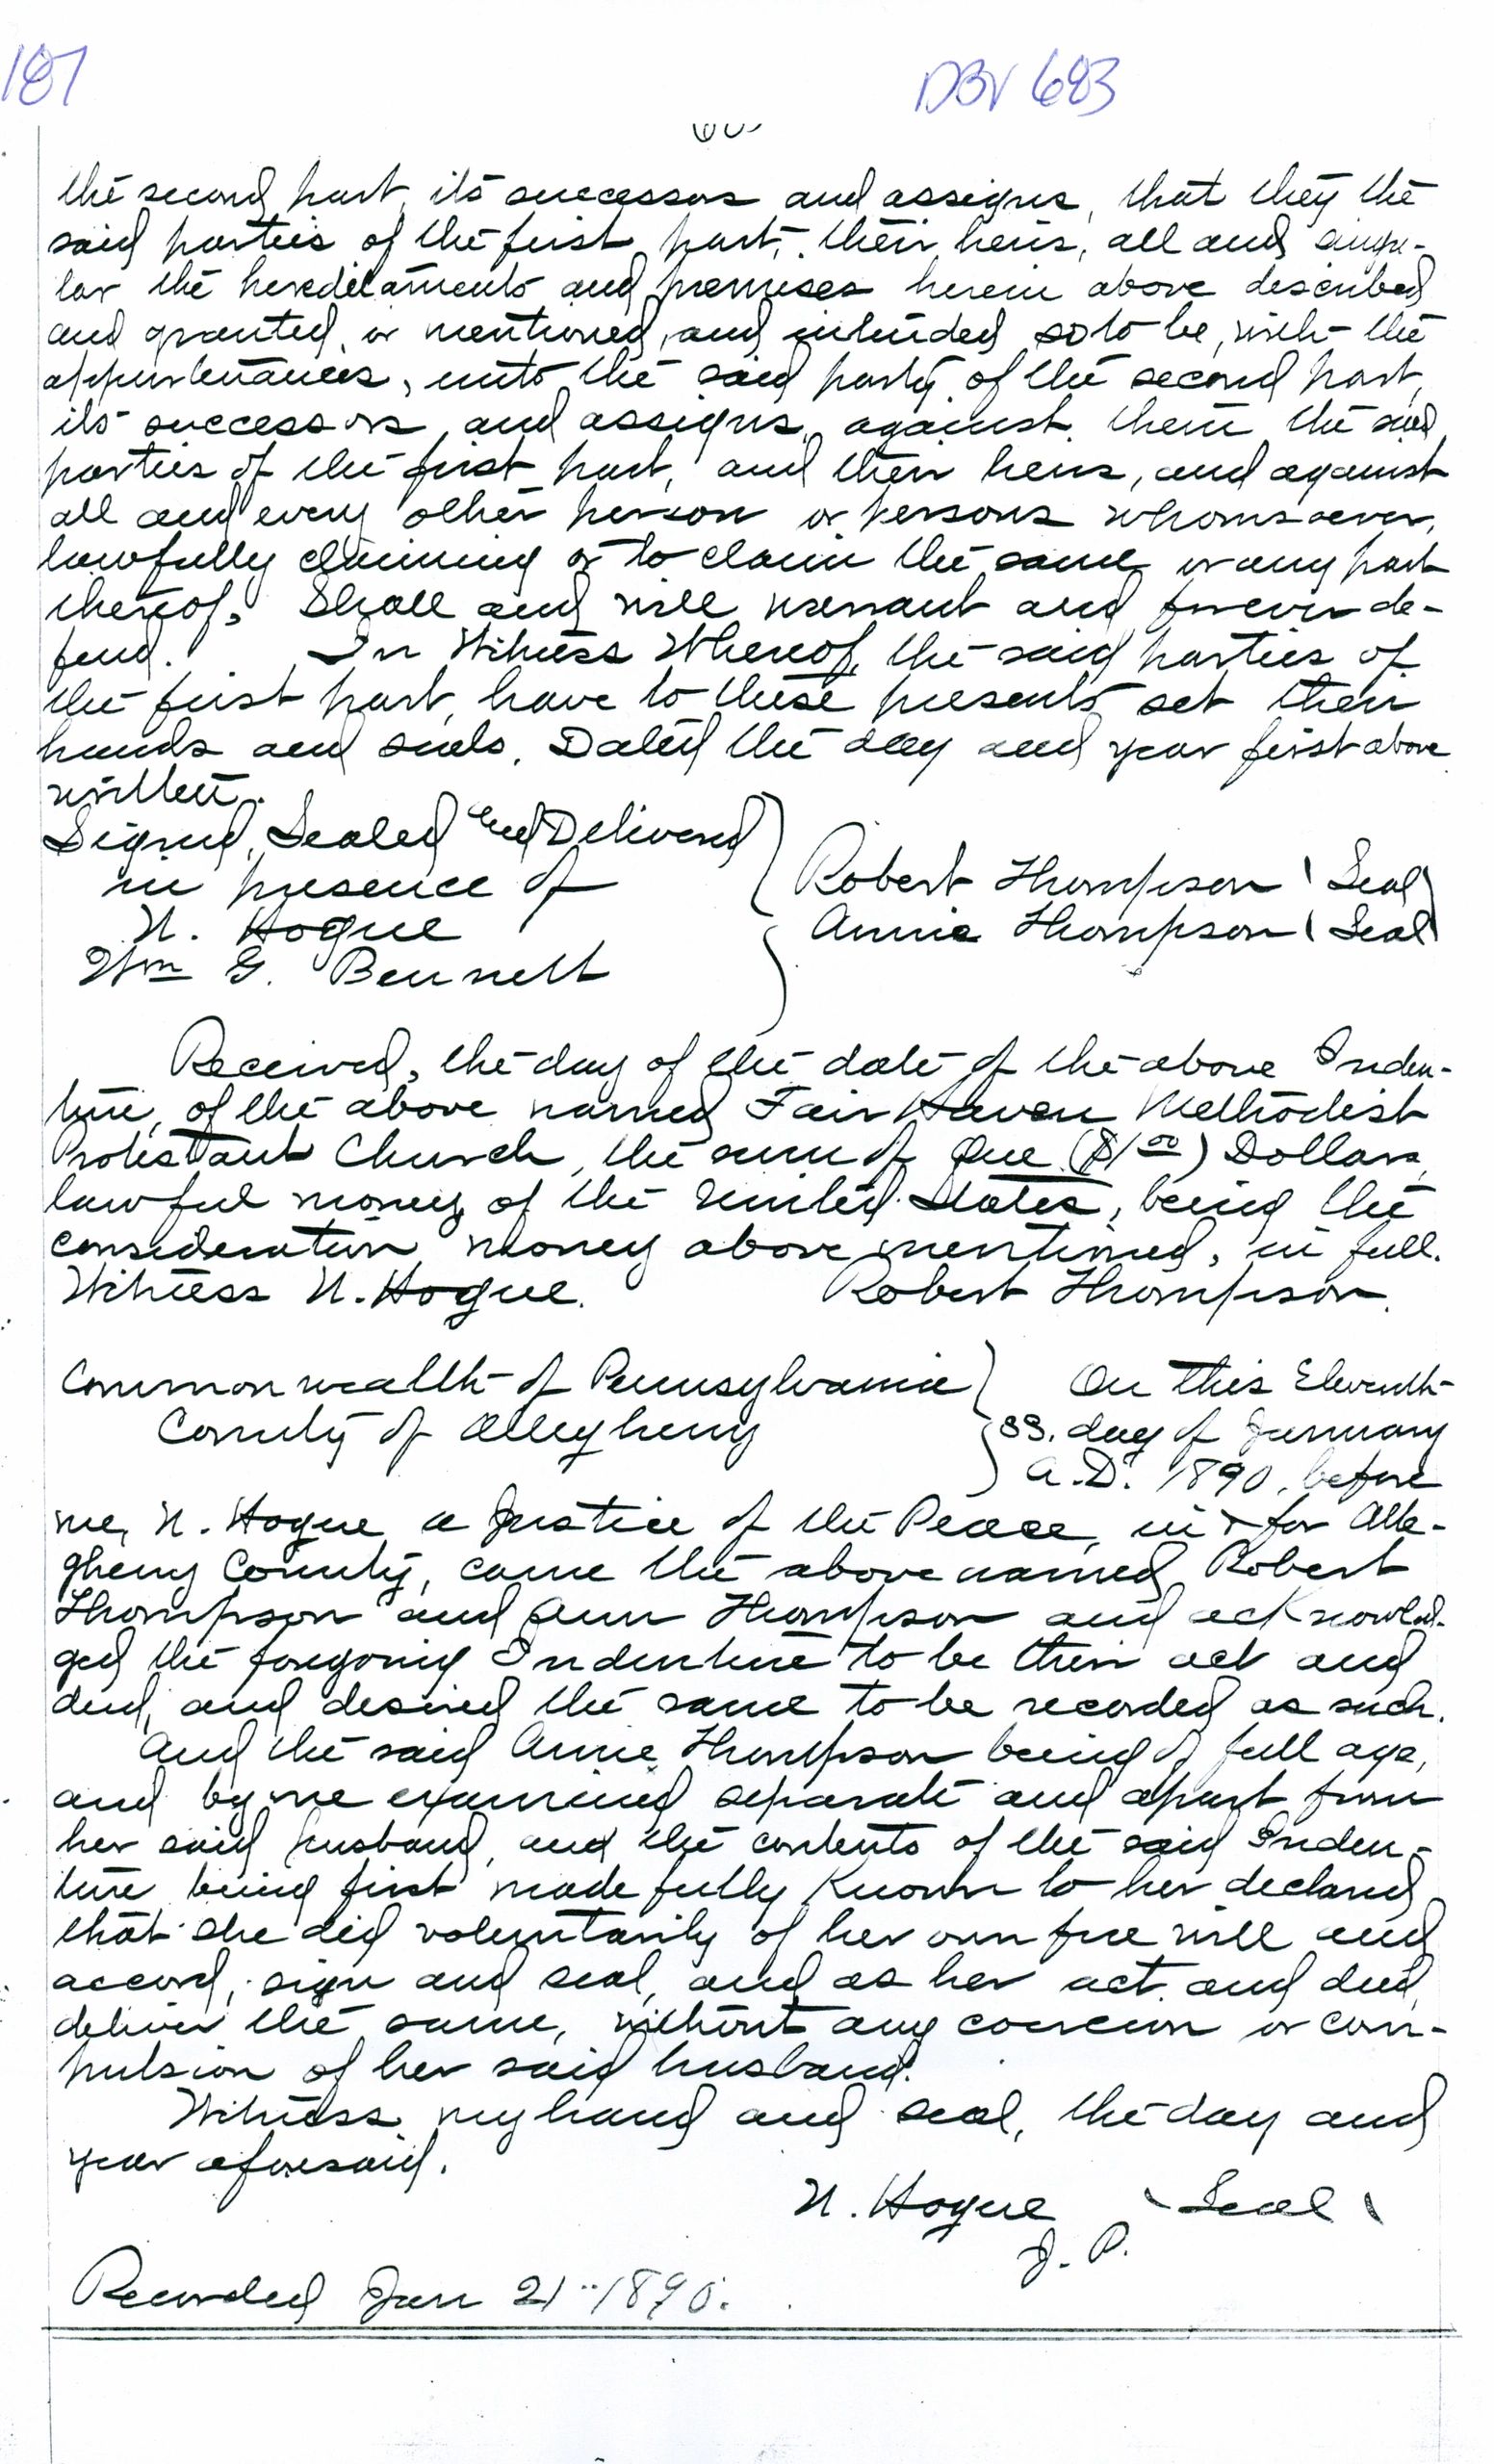 187
DBV 683
the second part, its successors and assigns, that they the
said parties of the first part, their heirs, all and singu-
lar the hereditaments and premises herein above described
and granted, or mentioned, and intended so to be, with the
appurtenances, unto the said party of the second part,
its successors and assigns, against them the said
parties of the first part, and their heirs, and against
all and every other person or persons whomsoever,
lawfully claiming or to claim the same or any part
thereof, Shall and will warrant and forever de-
fend. In Witness Whereof, the said parties of
the first part, have to these presents set their
hands and seals. Dated the day and year first above
written.
Signed, Sealed and Delivered
in presence of
N. Hogue
Wm G. Bennett
Robert Thompson (Seal)
Annie Thompson (Seal)
Received, the day of the date of the above Inden-
ture, of the above named Fair Haven Methodist
Protestant Church, the sum of One ($1 00) Dollars,
lawful money of the United States, being the
consideration money above mentioned, in full.
Witness N. Hogue. Robert Thompson.
Commonwealth of Pennsylvania
County of Allegheny
SS.
On this Eleventh
day of January
A.D. 1890, before
me, N. Hogue a Justice of the Peace, in & for Alle-
gheny County, came the above named Robert
Thompson and Ann Thompson and acknowled-
ged the foregoing Indenture to be their act and
deed, and desired the same to be recorded as such.
And the said Annie Thompson being of full age,
and by me examined separate and apart from
her said husband, and the contents of the said Inden-
ture being first made fully Known to her declared
that she did voluntarily of her own free will and
accord, sign and seal, and as her act and deed,
deliver the same, without any coercion or com-
pulsion of her said husband.
Witness my hand and seal, the day and
year aforesaid.
N. Hogue (Seal)
J. P.
Recorded Jan 21" 1890.